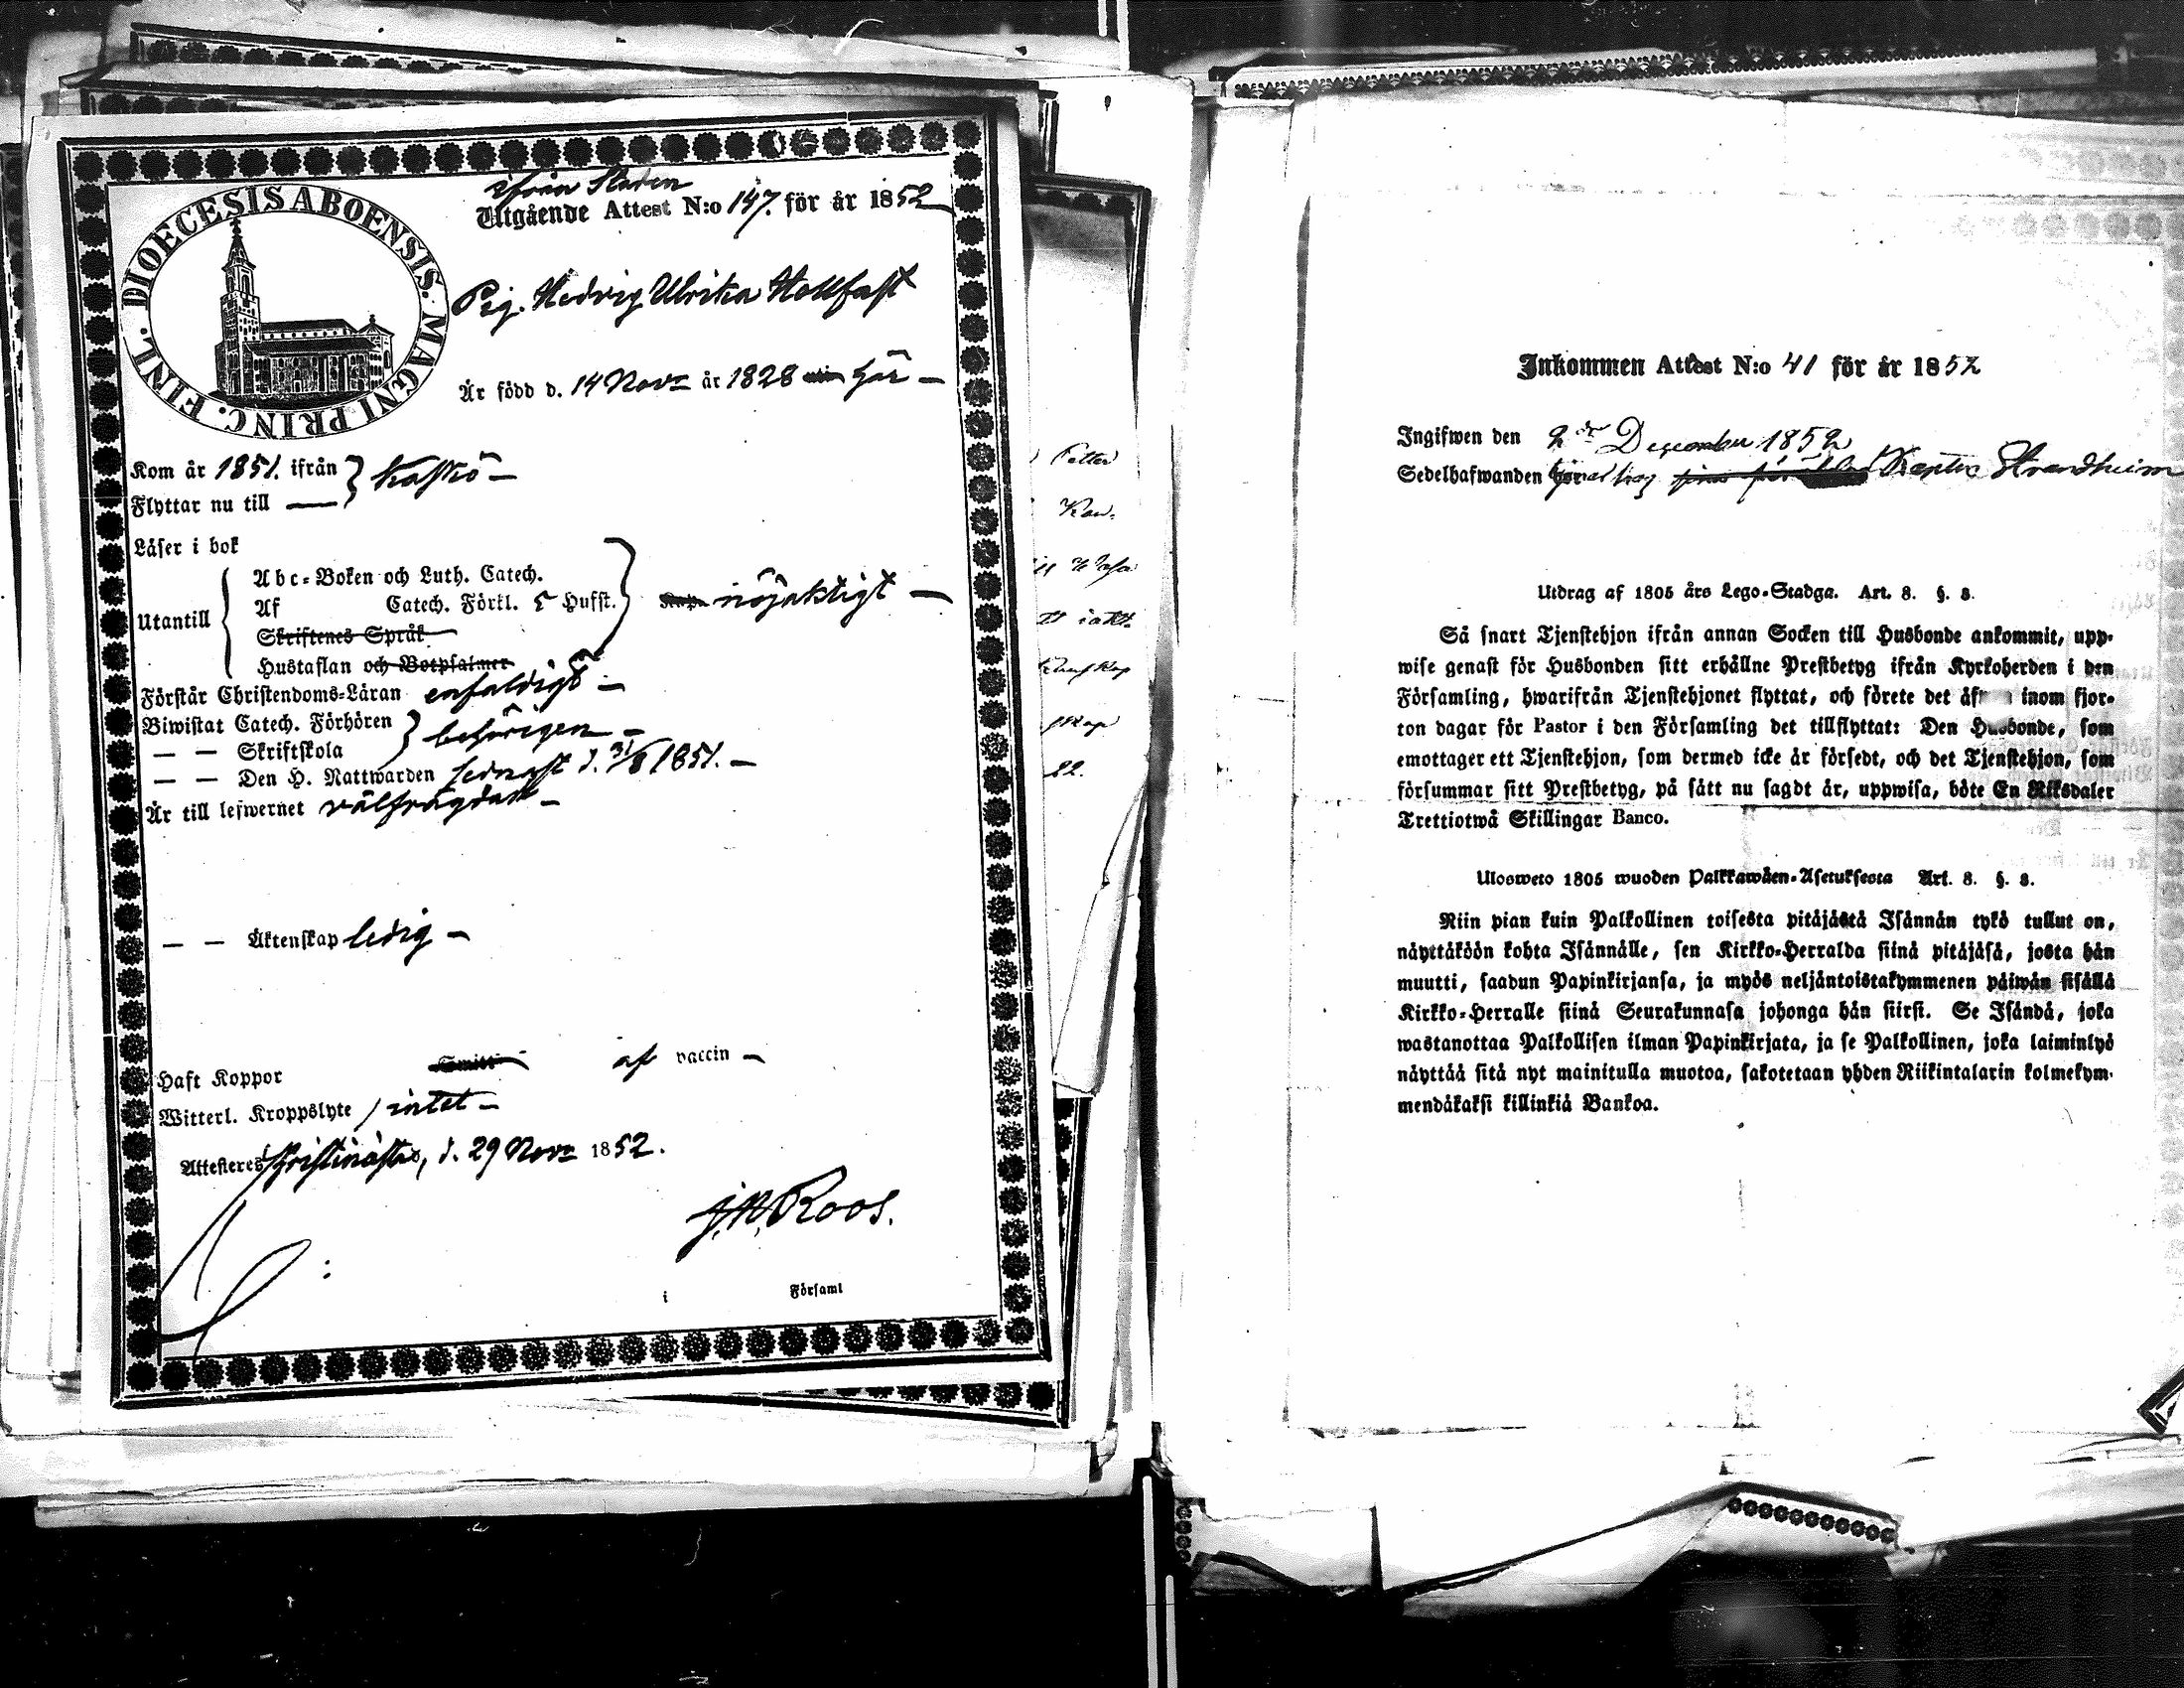 DIOECESIS ABOENSIS. MAGNI PRINC. FINL.
ifrån Staden
Utgående Attest N:o 147. för år 1852
Pig. Hedvig Ulrika Hollfast
Är född d. 14 Nov: år 1828 här –
Kom år 1851. ifrån } Kaskö –
Flyttar nu till —
Läser i bok
Utantill
Abc-Boken och Luth. Catech.
Af Catech. Förkl. 5 Hufst. nöjaktigt –
Skriftenes Språk
Hustaflan och Botpsalmer
Förstår Christendoms-Läran enfaldigt –
Biwistat Catech. Förhören } behörigen –
— — Skriftskola
— — Den H. Nattwarden sednast d. 31/8 1851. –
Är till lefwernet välfrägdad –
— — Äktenskap ledig –
Haft Koppor af vaccin –
Witterl. Kroppslyte / intet –
Attesteres Kristinestad, d. 29 Nov: 1852.
J.R. Roos.
i Församl
Petter
Kau.
till Wasa
iakt.
skap
22.
Inkommen Attest N:o 41 för år 1852
Ingifwen den 2 dr December 1852
Sedelhafwanden tjenar hos Kapten Strandheim
Utdrag af 1805 års Lego-Stadga. Art. 8. §. 8.
Så snart Tjenstehjon ifrån annan Socken till Husbonde ankommit, upp-
wise genast för Husbonden sitt erhållne Prestbetyg ifrån Kyrkoherden i den
Församling, hwarifrån Tjenstehjonet flyttat, och förete det äf inom fjor-
ton dagar för Pastor i den Församling det tillflyttat: Den Husbonde, som
emottager ett Tjenstehjon, som dermed icke är försedt, och det Tjenstehjon, som
försummar sitt Prestbetyg, på sätt nu sagdt är, uppwisa, böte En Riksdaler
Trettiotwå Skillingar Banco.
Ulosweto 1805 wuoden Palkkawäen-Asetuksesta Art. 8. §. 8.
Niin pian kuin Palkollinen toisesta pitäjästä Isännän tykö tullut on,
näyttäköön kohta Isännälle, sen Kirkko-Herralda siinä pitäjäsä, josta hän
muutti, saadun Papinkirjansa, ja myös neljäntoistakymmenen päiwän sisällä
Kirkko-Herralle siinä Seurakunnasa johonga hän siirsi. Se Isändä, joka
wastanottaa Palkollisen ilman Papinkirjata, ja se Palkollinen, joka laiminlyö
näyttää sitä nyt mainitulla muotoa, sakotetaan yhden Riikintalarin kolmekym-
mendäkaksi killinkiä Bankoa.